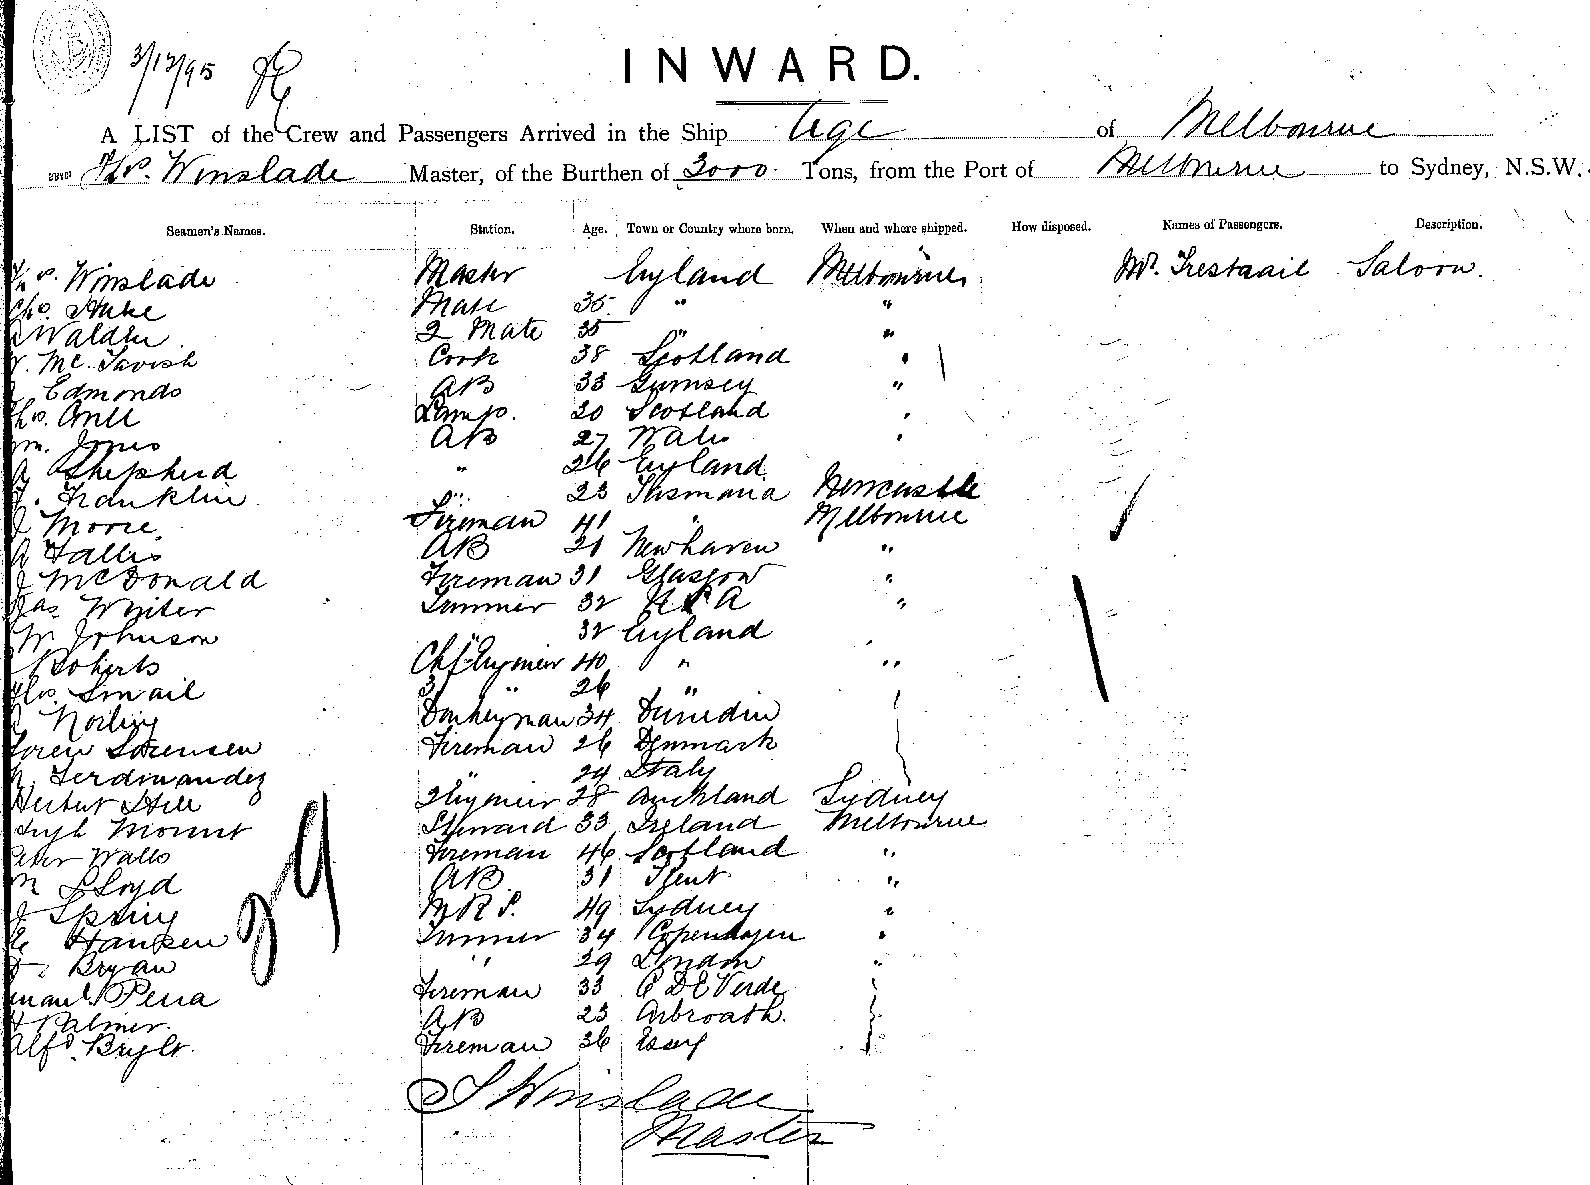 3/12/95
INWARD.
A LIST of the Crew and Passengers Arrived in the Ship Tega of Melbourne
Thos. Winslade Master, of the Burthen of 3000 Tons, from the Port of Melbourne to Sydney, N.S.W.
Seamen's Names. Station. Age. Town or Country where born. When and where shipped. How disposed. Names of Passengers. Description.
Winslade Master England Melbourne Mr. Trestrail Saloon.
Mate 35 " "
Walder 2 Mate 35 " "
McTavish Cook 38 Scotland "
Edmonds AB 33 Gurnsey "
Lamp. 20 Scotland "
Wm. Jones AB 27 Wales "
Shepherd " 26 England
Franklin " 23 Tasmania Newcastle
J Moore Fireman 41 " Melbourne
AB 21 Newhaven "
J McDonald Fireman 31 Glasgow "
Jas. Winter Trimmer 32 USA "
W Johnson " 32 England
Roberts Chf Engineer 40 " "
Thos. Smail 3 " 26 "
Donkeyman 34 Dunedin
Soren Sorensen Fireman 26 Denmark
Ferdinandez " 24 Italy
Herbert Hill 2 Engineer 28 Auckland Sydney
Hugh Mount Steward 33 Ireland Melbourne
Peter Walls Fireman 46 Scotland "
Lloyd AB 31 Kent "
J Spring M R S. 49 Sydney "
Hansen Trimmer 34 Copenhagen "
Bryan " 29 London "
Pena Fireman 33 C DE Verde
Palmer. AB 23 Arbroath.
Alfd. Bright. Fireman 36 Essex
29
T Winslade
Master